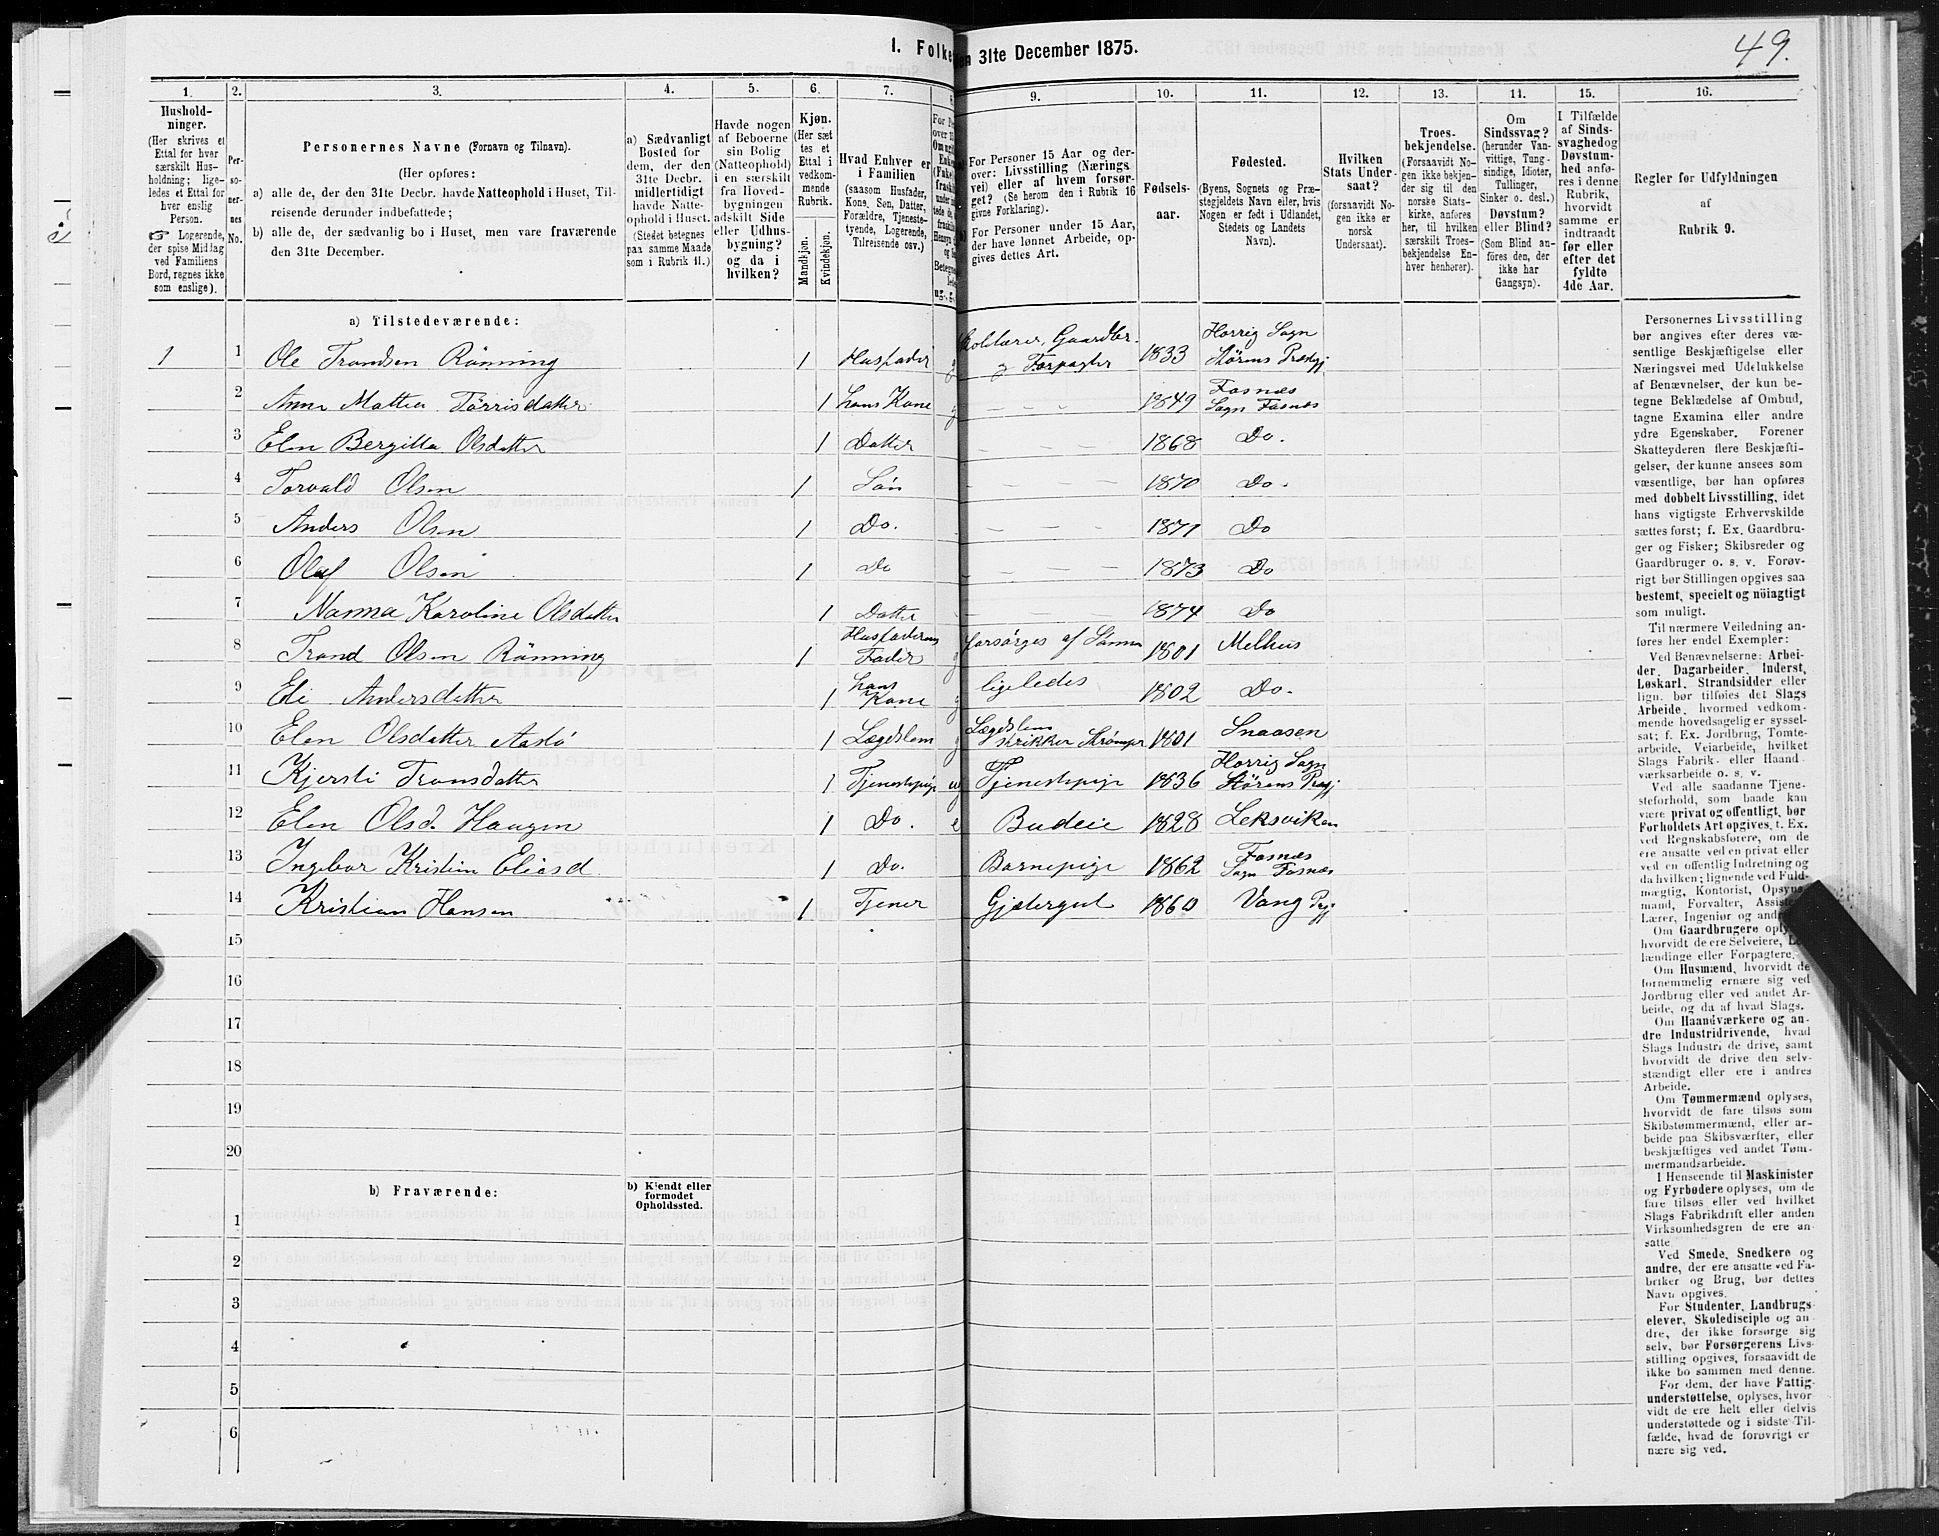 1. Folke
en 31te December 1875.
49.
1.
2.
3.
4.
5.
6.
7.
8
9.
10.
11.
12.
13.
14.
15.
16.
Hushold-
ninger.
(Her skrives et
Ettal for hver
særskilt Hus-
holdning; lige-
ledes et Ettal for
hver enslig
Person.
☞ Logerende,
der spise Middag
ved Familiens
Bord, regnes ikke
som enslige).
Per-
so-
ner-
nes
No.
Personernes Navne (Fornavn og Tilnavn).
(Her opføres:
a) alle de, der den 31te Decbr. havde Natteophold i Huset, Til-
reisende derunder indbefattede;
b) alle de, der sædvanlig bo i Huset, men vare fraværende
den 31te December.
a) Sædvanligt
Bosted for
dem, der den
31te Decbr.
midlertidigt
havde Natte-
ophold i Huset.
(Stedet betegnes
paa samme Maade
som i Rubrik 11.)
Havde nogen
af Beboerne
sin Bolig
(Natteophold)
i en særskilt
fra Hoved-
bygningen
adskilt Side
eller Udhus-
bygning?
og da i
hvilken?
Kjøn.
(Her sæt
tes et
Ettal i
vedkom-
mende
Rubrik.
Mandkjøn.
Kvindekjøn.
Hvad Enhver er
i Familien
(saasom Husfader,
Kone, Søn, Datter,
Forældre, Tjeneste-
tyende, Logerende,
Tilreisende osv.)
For Personer 15 Aar og der-
over: Livsstilling (Nærings
vei) eller af hvem forsør-
get? (Se herom den i Rubrik 16
givne Forklaring).
For Personer under 15 Aar,
der have lønnet Arbeide, op-
gives dettes Art.
Fødsels-
aar.
Fødested.
(Byens, Sognets og Præ-
stegjeldets Navn eller, hvis
Nogen er født i Udlandet,
Stedets og Landets
Navn).
Hvilken
Stats Under-
saat?
(forsaavidt No-
gen ikke er
norsk
Undersaat).
Troes-
bekjendelse.
(Forsaavidt No-
gen ikke bekjen-
der sig til den
norske Stats-
kirke, anføres
her, til hvilken
særskilt Troes-
bekjendelse En-
hver henhører).
Om
Sindssvag?
(herunder Van-
vittige, Tung-
sindige, Idioter,
Tullinger,
Sinker o. desl.)
Døvstum?
eller Blind?
(Som Blind an-
føres den, der
ikke har
Gangsyn).
I Tilfælde
af Sinds-
svaghedog
Døvstum-
hed anfø-
res i denne
Rubrik,
hvorvidt
samme er
indtraadt
før eller
efter det
fyldte
4de Aar.
Regler for Udfyldningen
af
Rubrik 9.
a) Tilstedeværende:
1 1 Ole Trondsen Rønning 1 Husfader g Gaardbr. og Forpagter 1833 Horrig Sogn Størens Præstgj
2 Anne Mattea Tørrisdatter 1 hans Kone g – – – 1849 Fosnæs Sogn Fosnæs
3 Elen Bergitta Olsdatter 1 Datter – – – 1868 Do.
4 Torvald Olsen 1 Søn – – – 1870 Do.
5 Anders Olsen 1 Do. – – – 1871 Do
6 Olaf Olsen 1 Do – – – 1873 Do
7 Nanna Karoline Olsdatter 1 Datter – – – 1874 Do
8 Trond Olsen Rønning 1 Husfaderens Fader g forsørges af Sønnen 1801 Melhus
9 Eli Andersdatter 1 hans Kone g ligeledes 1802 Do.
10 Elen Olsdatter Aaslø 1 Lægdslem g Lægdslem strikker Strømper 1801 Snaasen
11 Kjersti Tronsdatter 1 Tjenestepige ug Tjenestepige 1836 Horrig Sogn Størens Prgj
12 Elen Olsd. Haugen 1 Do. e Budeie 1828 Leksviken
13 Ingebor Kristine Eliasd 1 Do. Barnepige 1862 Fosnæs Sogn Fosnæs
14 Kristian Hansen 1 Tjener Gjætergut 1860 Vang Prgj
15
16
17
18
19
20
b) Fraværende:
b) Kjendt eller
formodet
Opholdssted.
1
2
3
4
5
6
Personernes Livsstilling
bør angives efter deres væ-
sentlige Beskjæftigelse eller
Næringsvei med Udelukkelse
af Benævnelser, der kun be-
tegne Beklædelse af Ombud,
tagne Examina eller andre
ydre Egenskaber. Forener
Skatteyderen flere Beskjæfti-
gelser, der kunne ansees som
væsentlige, bør han opføres
med dobbelt Livsstilling, idet
hans vigtigste Erhvervskilde
sættes først; f. Ex. Gaardbru-
ger og Fisker; Skibsreder og
Gaardbruger o. s. v. Forøv-
rigt bør Stillingen opgives saa
bestemt, specielt og nöiagtigt
som muligt.
Til nærmere Veiledning an-
føres her endel Exempler:
Ved Benævnelserne: Arbei-
der, Dagarbeider, Inderst,
Løskarl, Strandsidder eller
lign. bør tilføies det Slags
Arbeide, hvormed vedkom-
mende hovedsagelig er syssel-
sat; f. Ex. Jordbrug, Tomte-
arbeide, Veiarbeide, hvilket
Slags Fabrik- eller Haand
værksarbeide o. s. v.
Ved alle saadanne Tjene-
steforhold, som baade kan
være privat og offentligt, bør
Forholdets Art opgives, t. Ex.
ved Regnskabsførere, om de
ere ansatte ved en privat eller
ved en offentlig Indretning og
da hvilken; lignende ved Fuld-
mægtig, Kontorist, Opsyns-
mand, Forvalter, Assiste
Lærer, Ingeniør og and
Om Gaardbrugere opl
hvorvidt de ere Selveiere, L
lændinge eller Forpagtere.
Om Husmænd, hvorvidt de
fornemmelig ernære sig ved
Jordbrug eller ved andet Ar-
beide, og da af hvad Slags.
Om Haandværkere og an-
dre Industridrivende, hvad
Slags Industri de drive, samt
hvorvidt de drive den selv-
stændigt eller ere i andres
Arbeide.
Om Tømmermænd oplyses,
hvorvidt de fare tilsøs som
Skibstømmermænd, eller ar-
beide paa Skibsværfter, eller
beskjæftiges ved andet Tøm-
mermandsarbeide.
I Henseende til Maskinister
og Fyrbødere oplyses, om de
fare tilsøs eller ved hvilket
Slags Fabrikdrift eller anden
Virksomhedsgren de ere an-
satte
Ved Smede, Snedkere og
andre, der ere ansatte ved Fa-
briker og Brug, bør dettes
Navn opgives.
For Studenter, Landbrugs-
elever, Skoledisciple og an-
dre, der ikke forsørge sig
selv, bør Forsørgerens Livs-
stilling opgives, forsaavidt de
ikke bo sammen med denne.
For dem, der have Fattig-
understøttelse, oplyses, hvor
vidt de ere helt eller delvis
understøttede og i sidste Til-
fælde, hvad de forøvrigt er
nære sig ved.